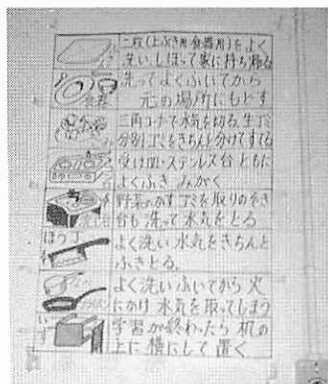 二枚(上ぶき用・食器用)をよく
洗い、しぼって家に持ち帰る
食器
洗ってよくふいてから
元の場所にもどす
三角コーナーで水気を切る。生ゴミ
分別ゴミをきちんと分けてすてる
受け皿・ステンレス台ともに
よくふきみがく
野菜のかす、ゴミを取りのぞき
台も洗って水気をとる
ほう
よく洗い水気をきちんと
ふきとる。
よく洗いふいてから火
にかけ水気を取ってしまう
いす
学習が終わったら机の
上に横にして置く